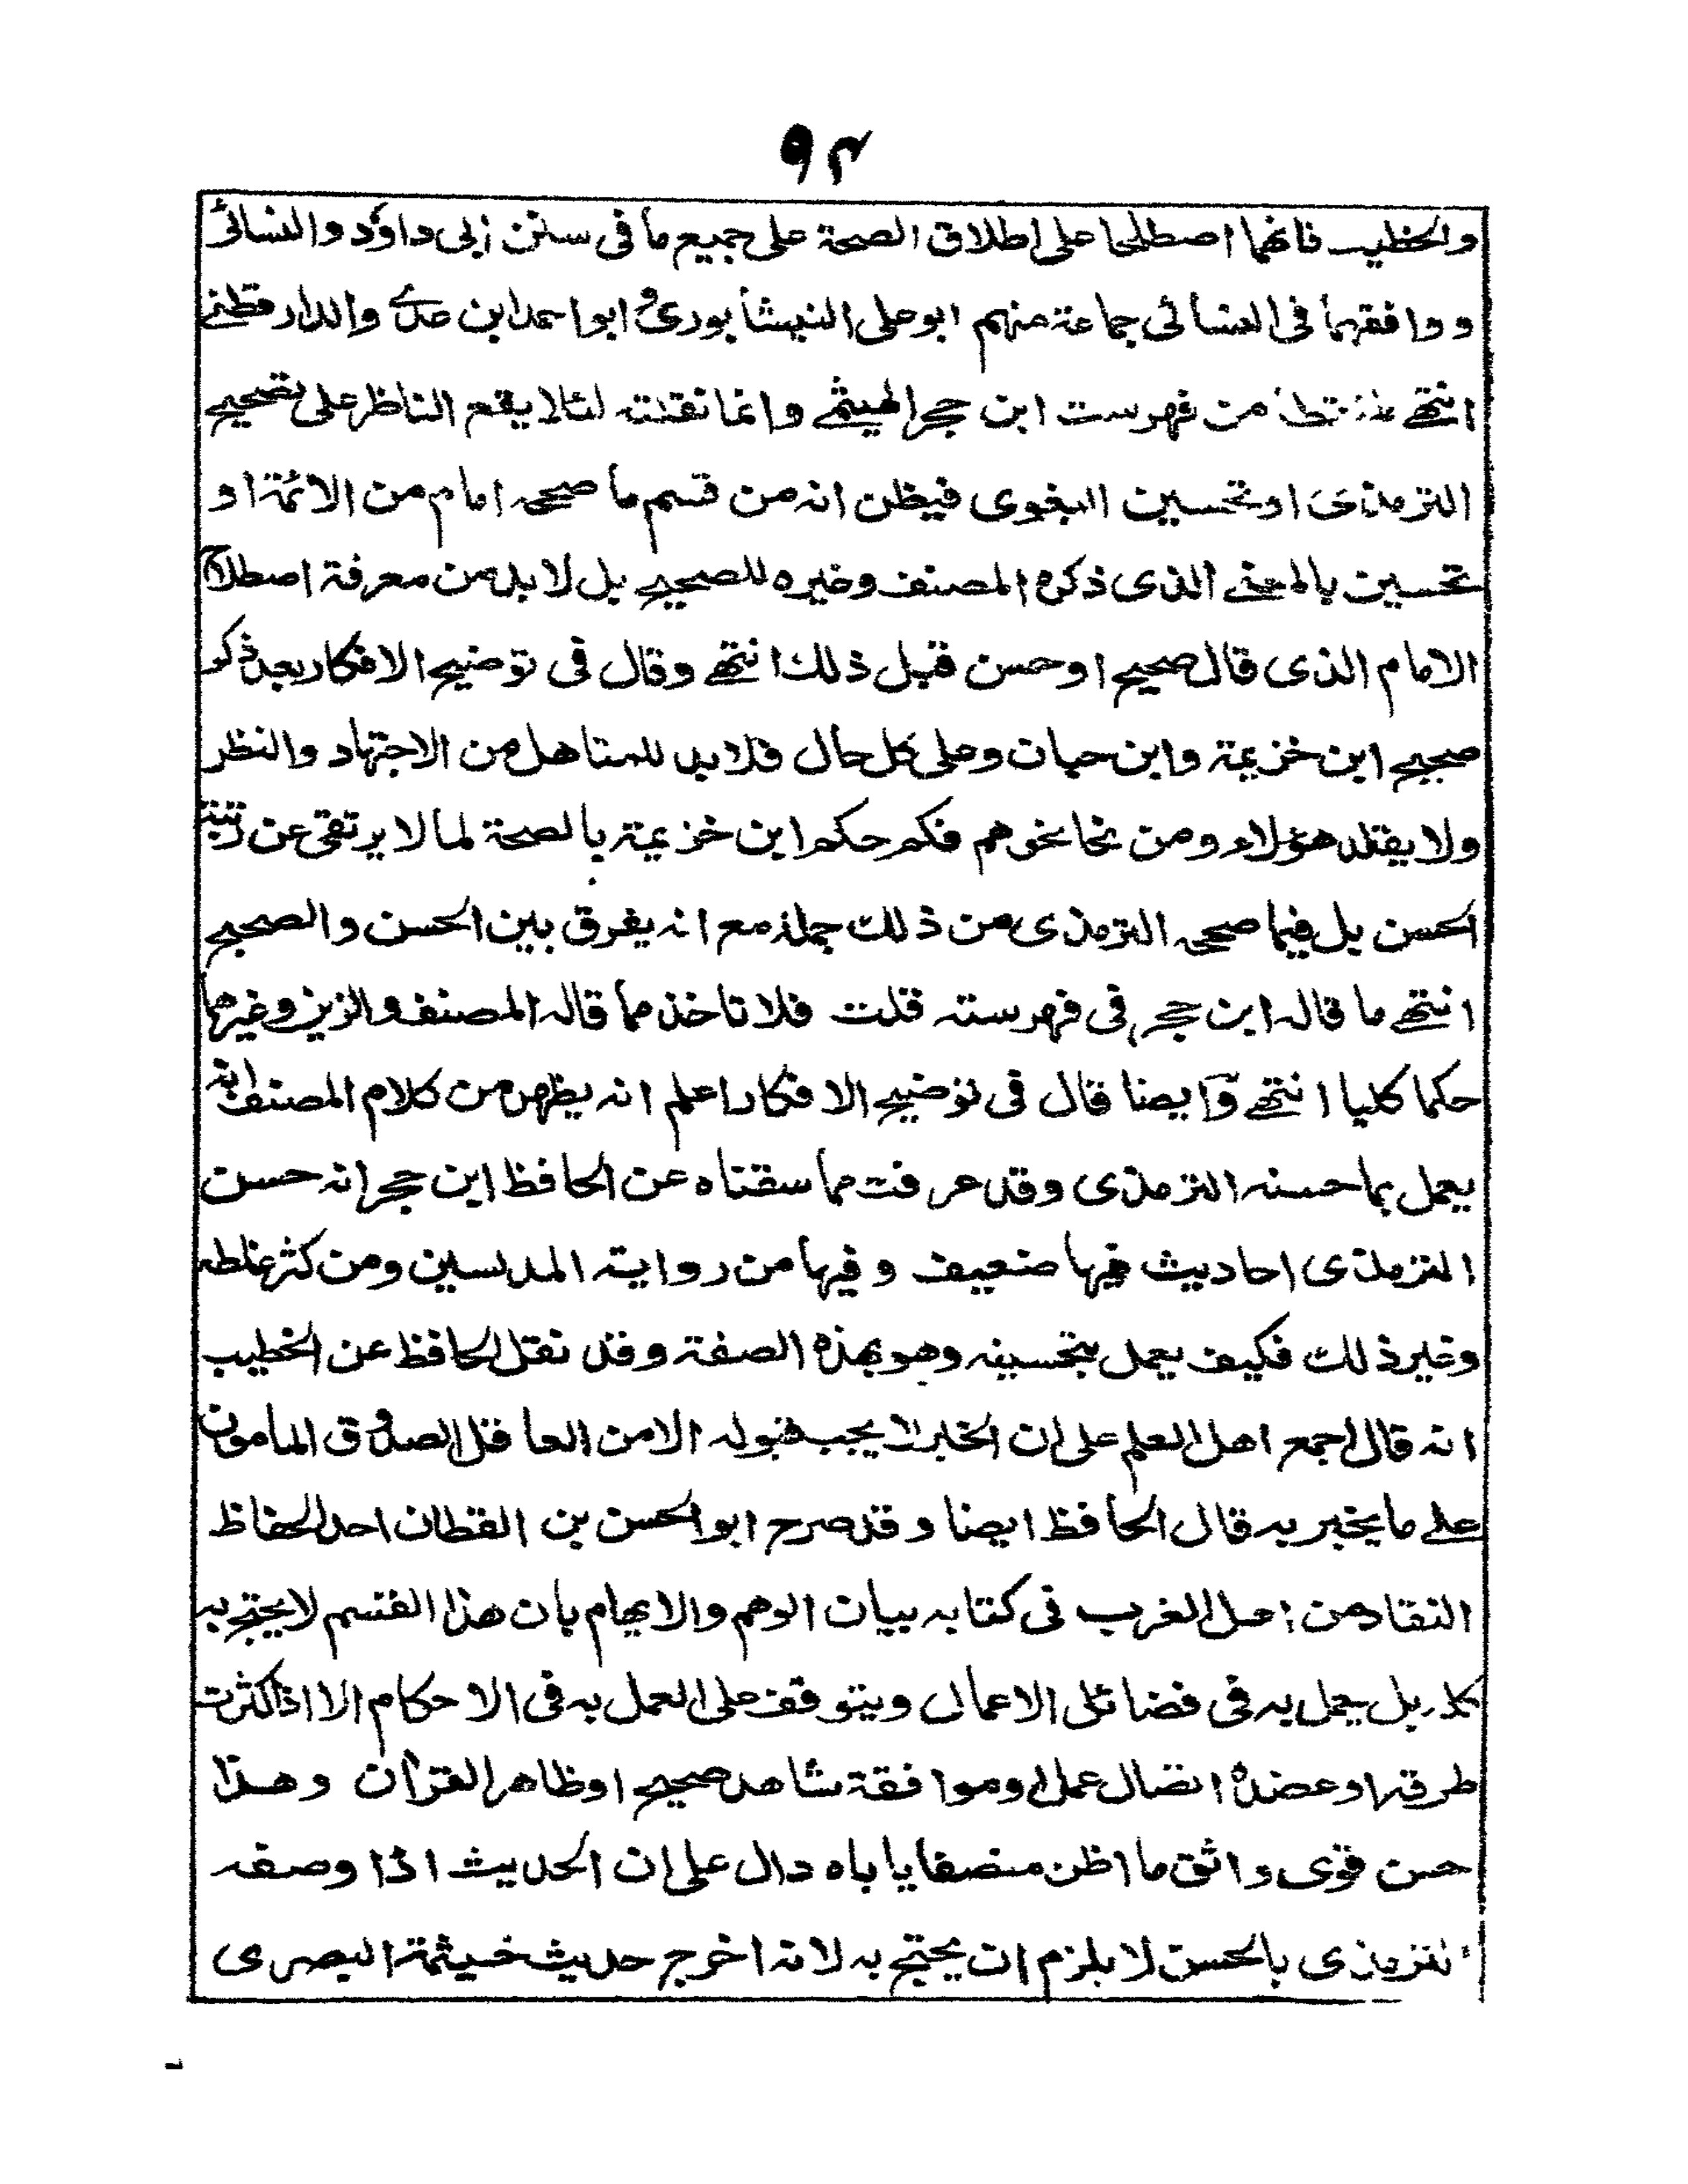 ٩٣
والخطيب فانهما اصطلحا على اطلاق الصحة على جميع ما فى سنن ابى داؤد والنسائى
ووافقهما فى النسائى جماعة منهم ابو على النيشابورى وابو احمد ابن عدے والدارقطنے
انتهے من فهرست ابن حجر الهيثمے وانما نقلته لئلا يقع الناظر على تصحيح
الترمذى او تحسين البغوى فيظن انه من قسم ما صححه امام من الائمة او
تحسين بالمعنے الذى ذكره المصنف وغيره للصحيح بل لا بد من معرفة اصطلاح
الامام الذى قال صحيح او حسن قبل ذلك انتهے وقال فى توضيح الافكار بعد ذكر
صحيح ابن خزيمة وابن حبان وعلى كل حال فلا بد للمتاهل من الاجتهاد والنظر
ولا يقلد هؤلاء ومن نحا نحوهم فكم حكم ابن خزيمة بالصحة لما لا يرتقى عن رتبة
الحسن بل فيما صححه الترمذى من ذلك جملة مع انه يفرق بين الحسن والصحيح
انتهے ما قاله ابن حجر فى فهرسته قلت فلا تاخذ مما قاله المصنف والزين وغيرهما
حكما كليا انتهے وايضا قال فى توضيح الافكار اعلم انه يظهر من كلام المصنف انه
يعمل بما حسنه الترمذى وقد عرفت مما سقناه عن الحافظ ابن حجر انه حسن
الترمذى احاديث فيها ضعيف وفيها من رواية المدلسين ومن كثر غلطه
وغير ذلك فكيف يعمل بتحسينه وهو بهذه الصفة وقد نقل الحافظ عن الخطيب
انه قال اجمع اهل العلم على ان الخبر لا يجب قبوله الا من العاقل الصدوق المامون
علے ما يخبر به قال الحافظ ايضا وقد صرح ابو الحسن بن القطان احد الحفاظ
النقاد من اهل الغرب فى كتابه بيان الوهم والايهام بان هذا القسم لا يحتج به
كله بل يعمل به فى فضائل الاعمال ويتوقف على العمل به فى الاحكام الا اذا كثرت
طرقه او عضده اتصال عمل او موافقة شاهد صحيح او ظاهر القران وهذا
حسن قوى واثق ما اظن منصفا ياباه دال على ان الحديث اذا وصفه
الترمذى بالحسن لا يلزم ان يحتج به لانه اخرج حديث خيثمة البصرى